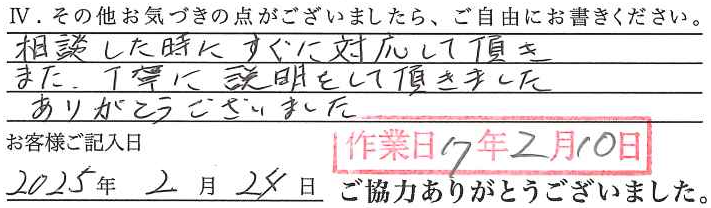 Ⅳ.その他お気づきの点がございましたら、ご自由にお書きください。
相談した時にすぐに対応して頂き
また、丁寧に説明をして頂きました
ありがとうございました
お客様ご記入日
作業日17年2月10日
2025年 2月24日
ご協力ありがとうございました。